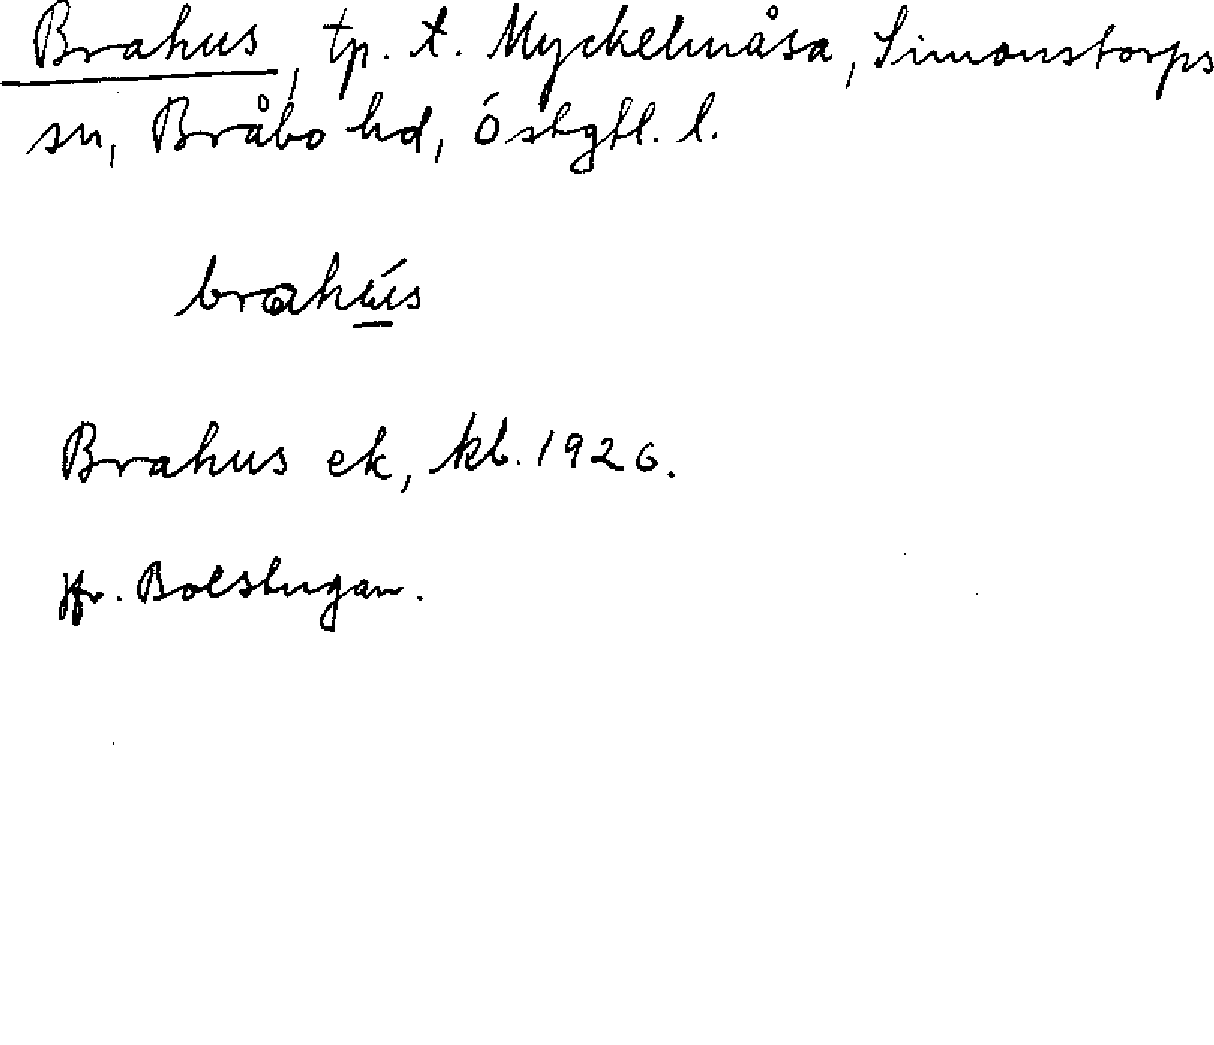 Brahus, tp. t. Myckelmåsa, Simonstorps
sn, Bråbo hd, Östgtl. l.
brahús
Brahus ek, kb. 1926.
Jfr. Bolstugan.